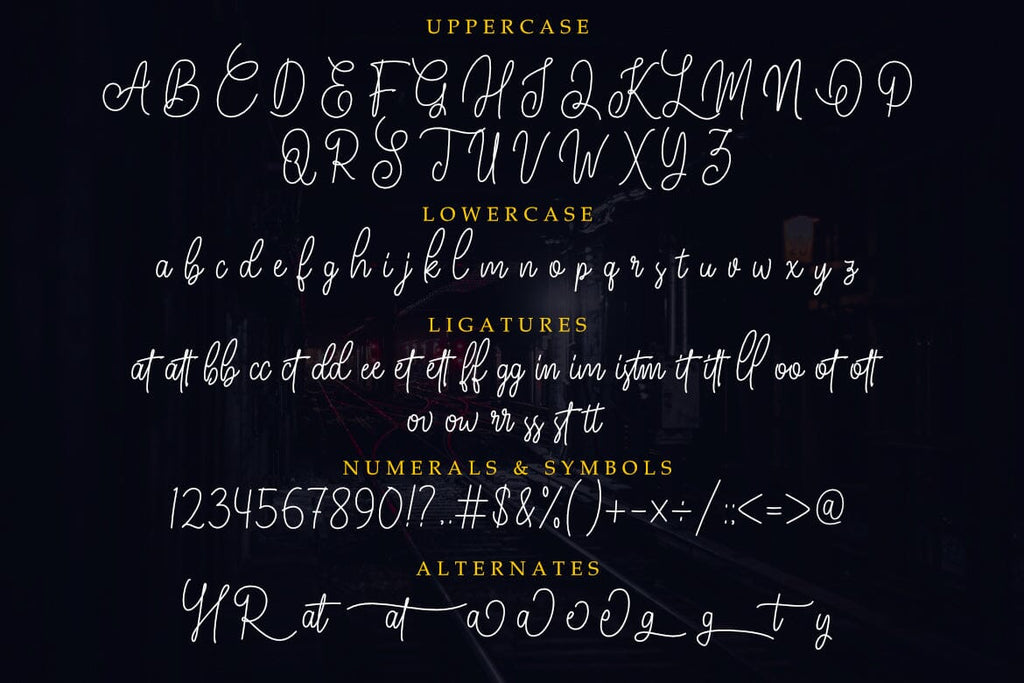 UPPERCASE
A B C D E F G H I J K L M N O P
Q R S T U V W X Y Z
LOWERCASE
a b c d e f g h i j k l m n o p q r s t u v w x y z
LIGATURES
at att bb cc ct dd ee et ett ff gg in im istm it itt ll oo ot ott
ov ow rr ss st tt
NUMERALS & SYMBOLS
1234567890!?..#$&%()+-×÷/:;<=>@
ALTERNATES
H R at at a a e e g g t y